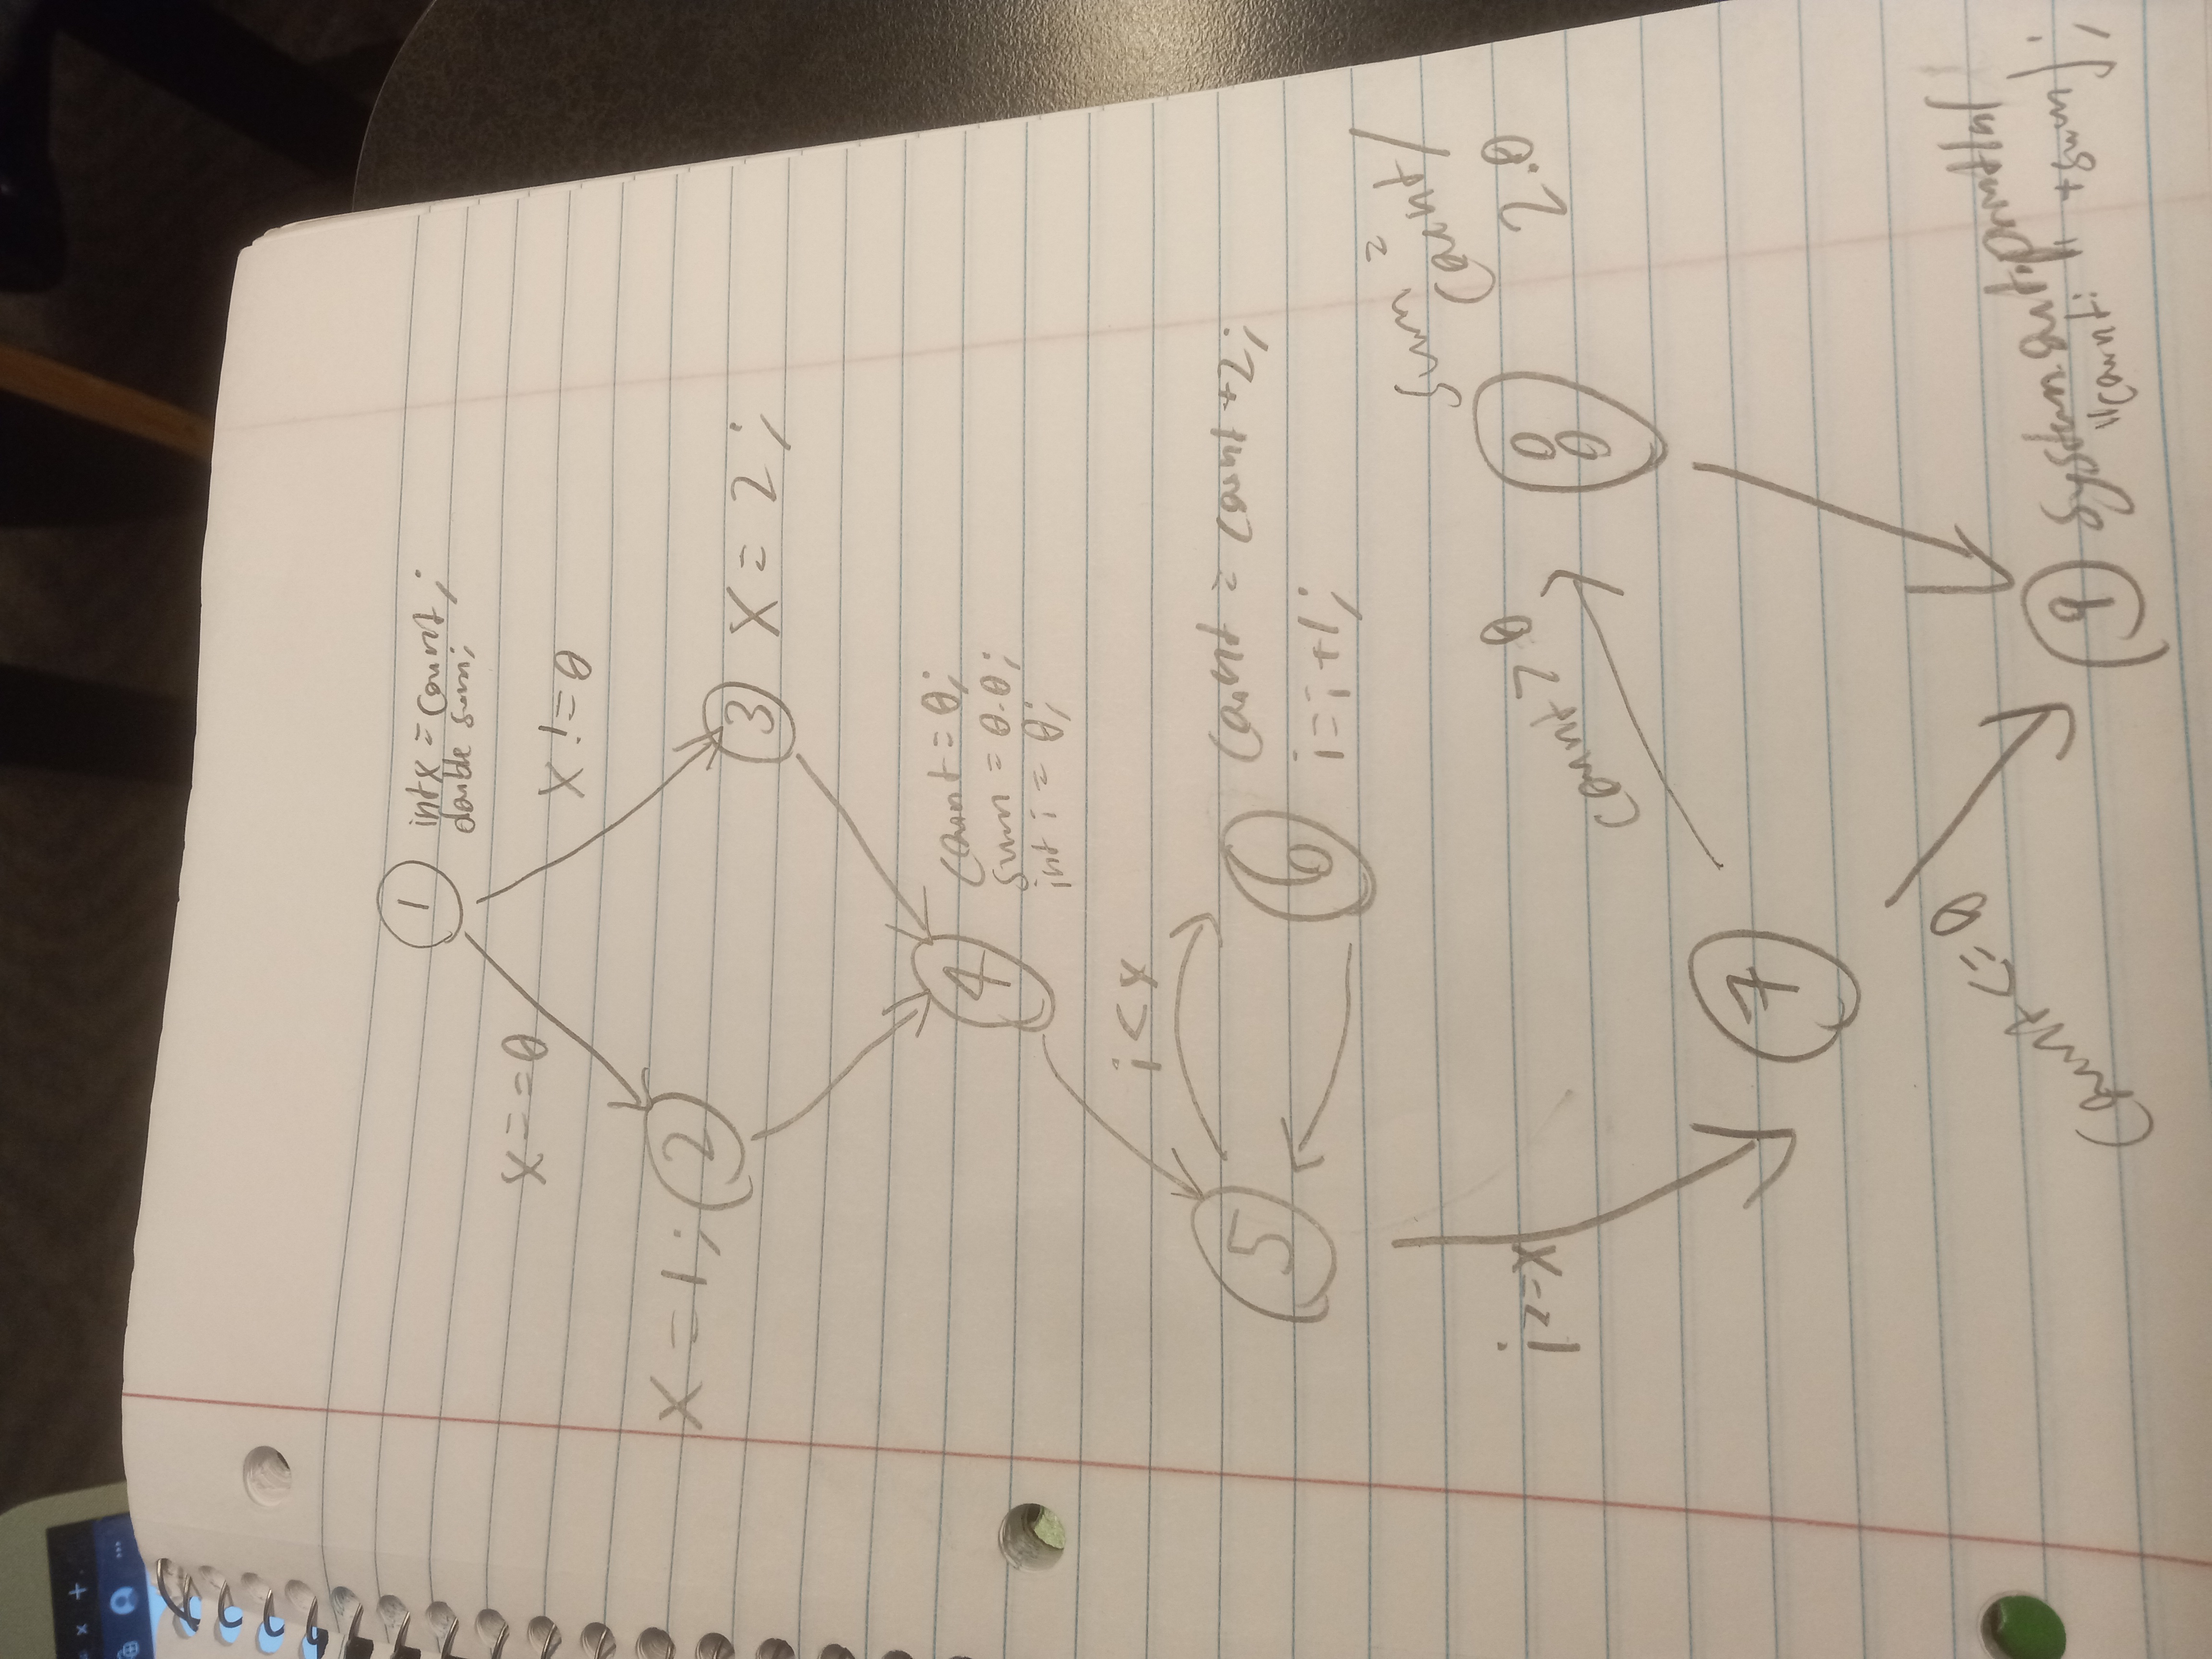 1
int x = count;
double sum;
x==0
x!=0
x=1;
2
3
x=2;
4
count=0;
sum=0.0;
int i=0;
i<x
5
6
count=count+2;
i=i+1;
sum=
count/
2.0
i>=x
count>0
8
7
count<=0
9
System.out.println(
"count: "+sum);